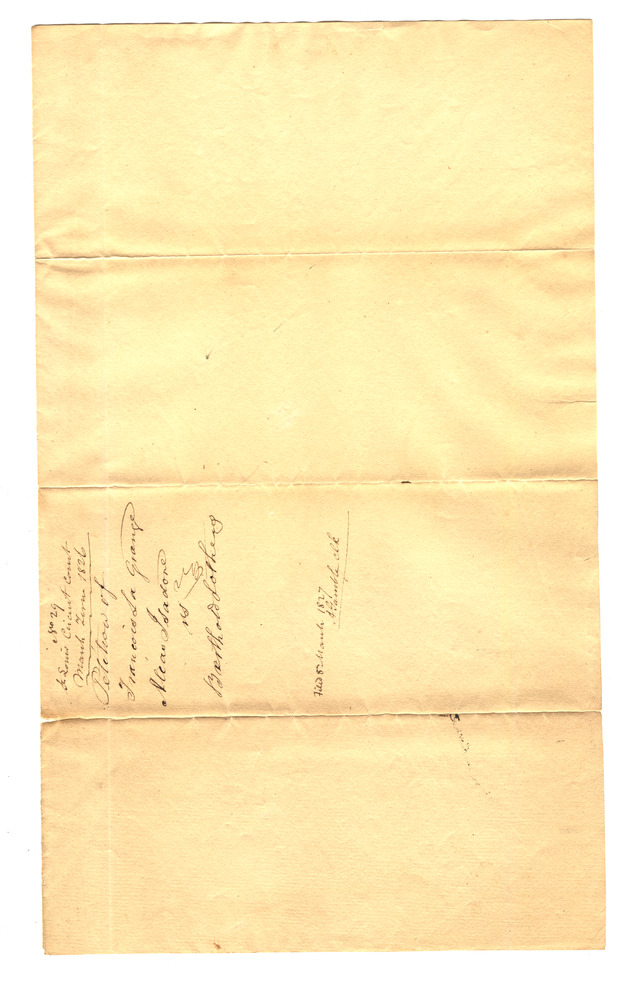 No 29
St Louis Circuit Court
March Term 1826
Petition of
Francois La Grange
Alias Isadore
vs
Berthold & others
Filed 8 March 1827
A Gamble clk